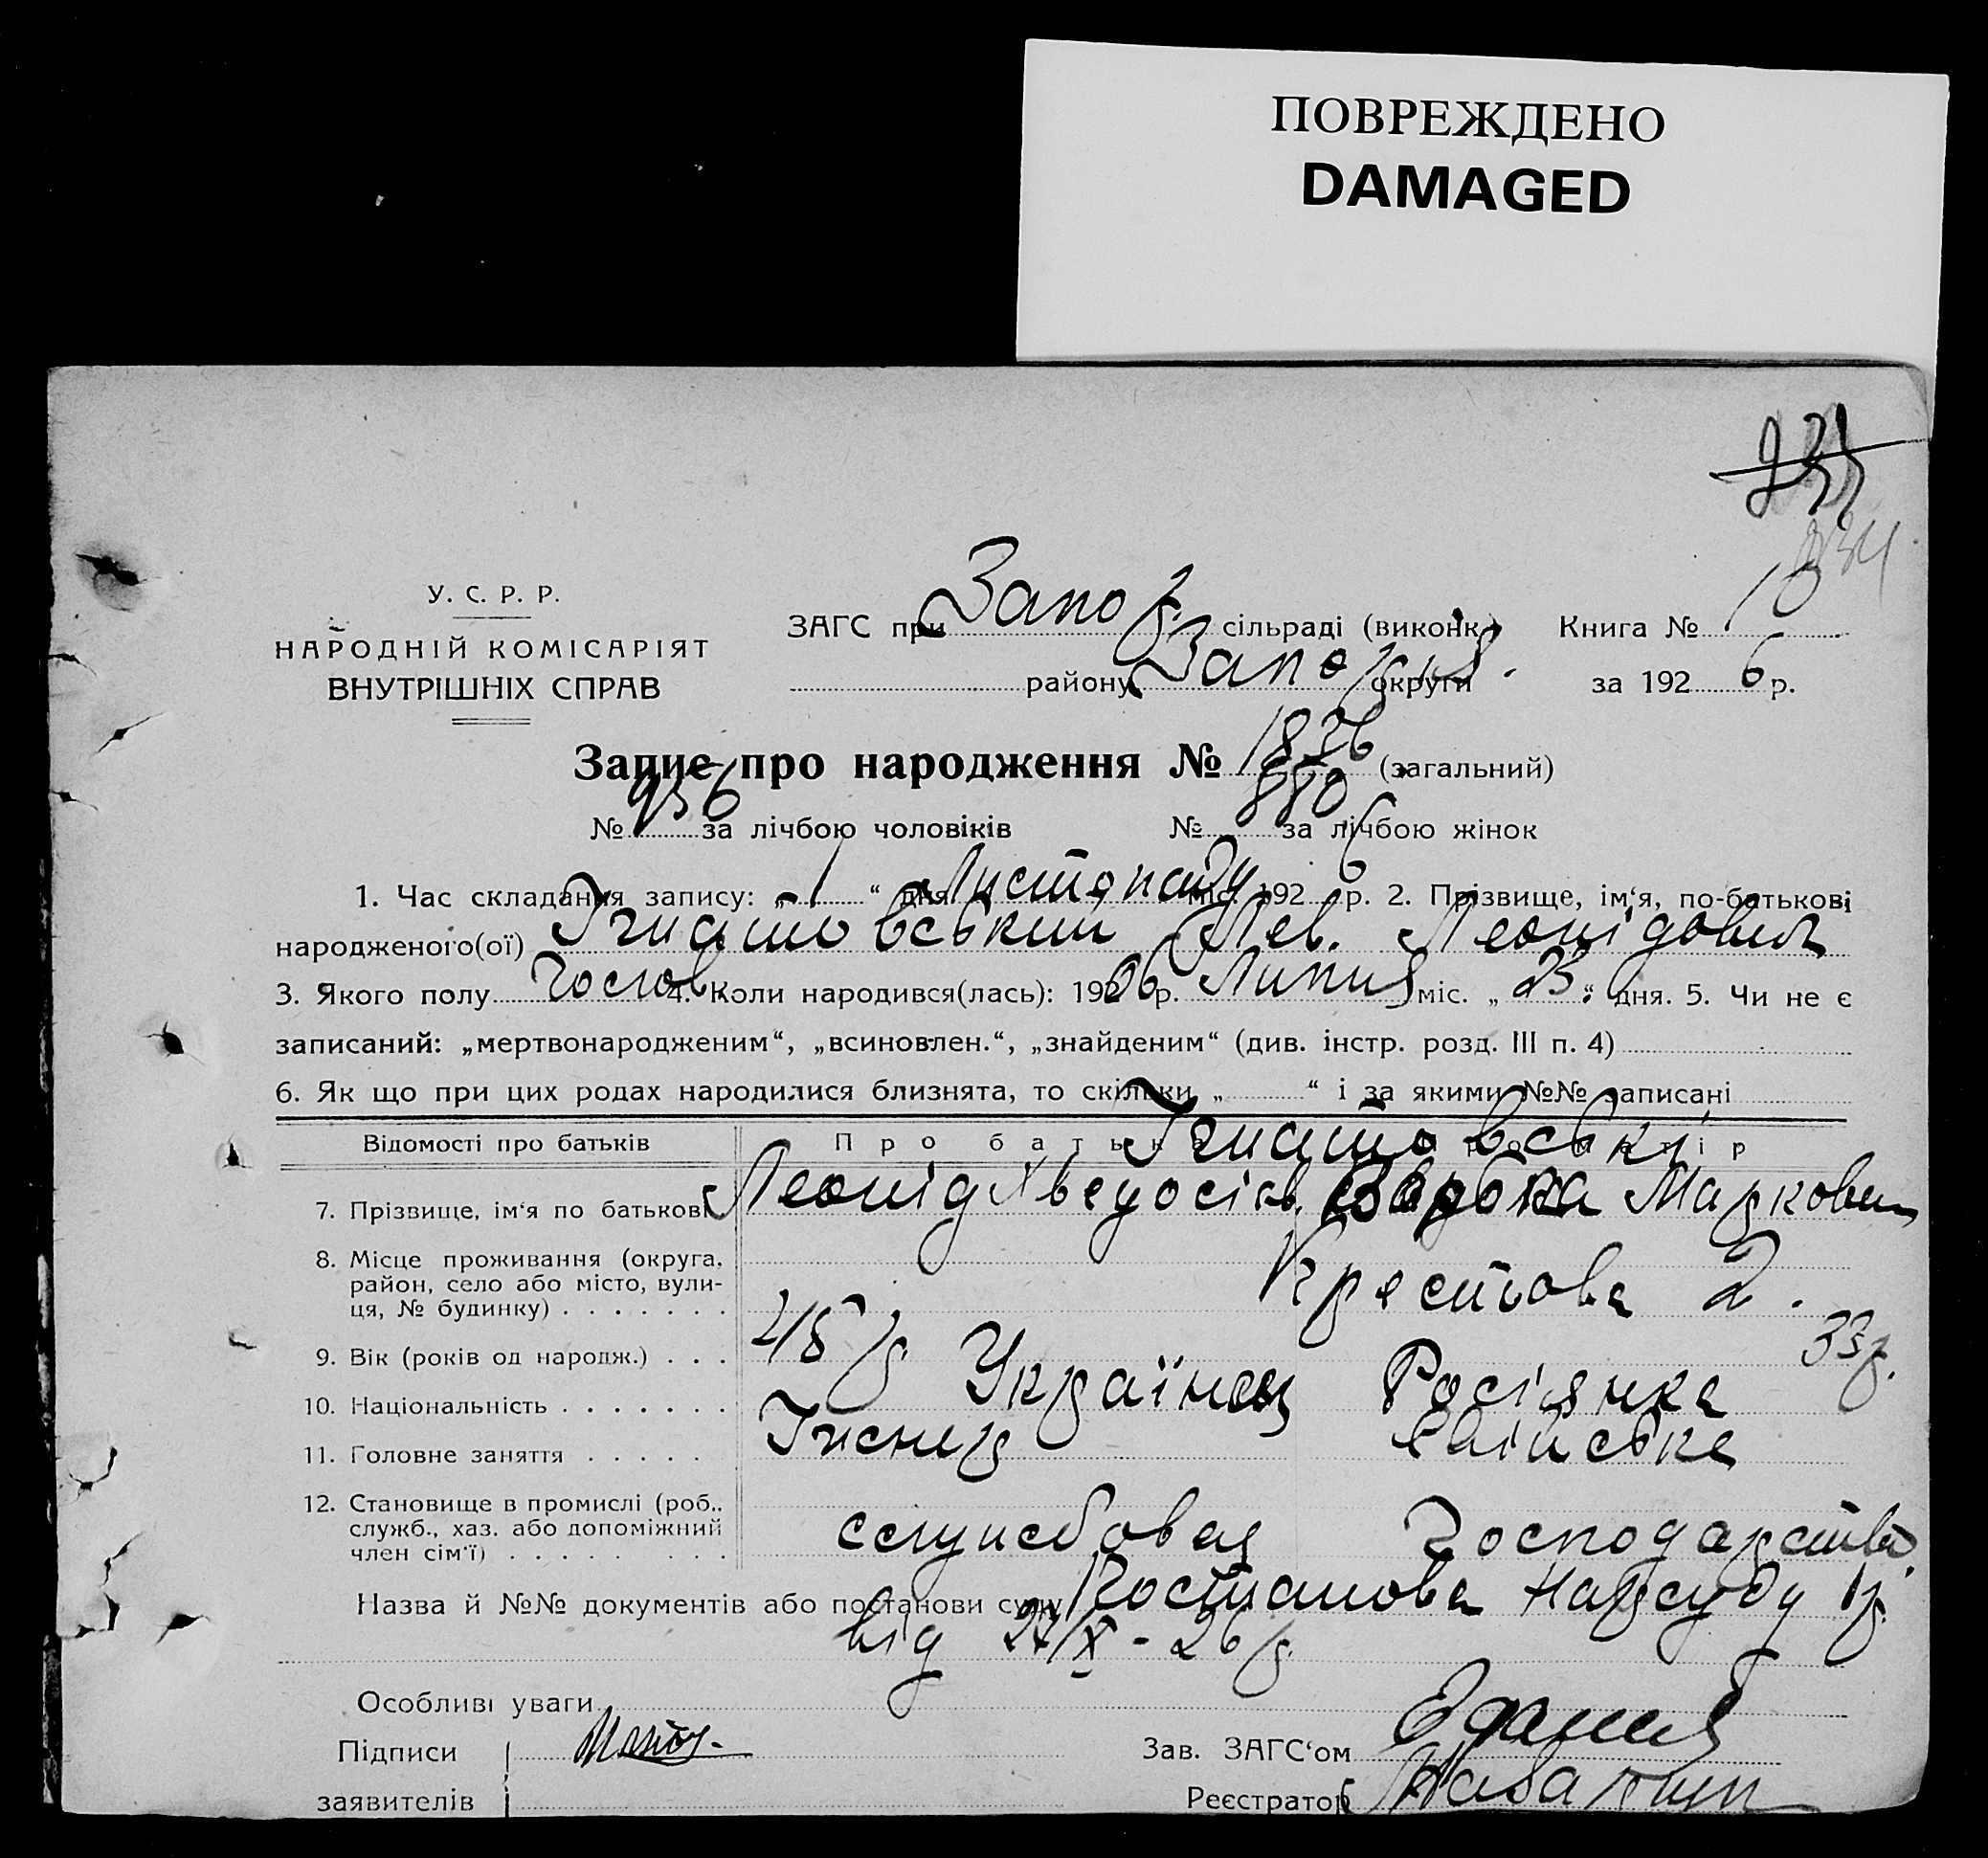 ПОВРЕЖДЕНО
DAMAGED
934
У. С. Р. Р.
НАРОДНІЙ КОМІСАРІЯТ
ВНУТРІШНІХ СПРАВ
ЗАГС при Запор. сільраді (виконк.) Книга № 10
району Запоріз. округи за 1926 р.
Запис про народження № 1836 (загальний)
№ 956 за лічбою чоловіків № 880 за лічбою жінок
1. Час складання запису: „ 1 “ дня Листопаду міс. 1926 р. 2. Прізвище, ім‘я, по-батькові
народженого(ої) Ігнатовський Лев. Леонідович
3. Якого полу чолов. 4. Коли народився(лась): 1906 р. Липня міс. „ 23 “ дня. 5. Чи не є
записаний: „мертвонародженим“, „всиновлен.“, „знайденим“ (див. інстр. розд. III п. 4)
6. Як що при цих родах народилися близнята, то скільки „ “ і за якими №№ записані
Відомості про батьків Про батька Про матір
Ігнатовські
7. Прізвище, ім‘я по батькові Леонід Хведосієв. Варвара Марковн
8. Місце проживання (округа, район, село або місто, вулиця, № будинку) Крестова 2.
9. Вік (років од народж.) 45 р. 33 р.
10. Національність Українець Росіянка
11. Головне заняття Інженер хатійське
12. Становище в промислі (роб., служб., хаз. або допоміжний член сім‘ї) службовець господарство
Назва й №№ документів або постанови суду Постанова Нарсуду 1 р.
від 27/X-26 р.
Особливі уваги
Підписи
заявителів
Зав. ЗАГС‘ом
Реєстратор